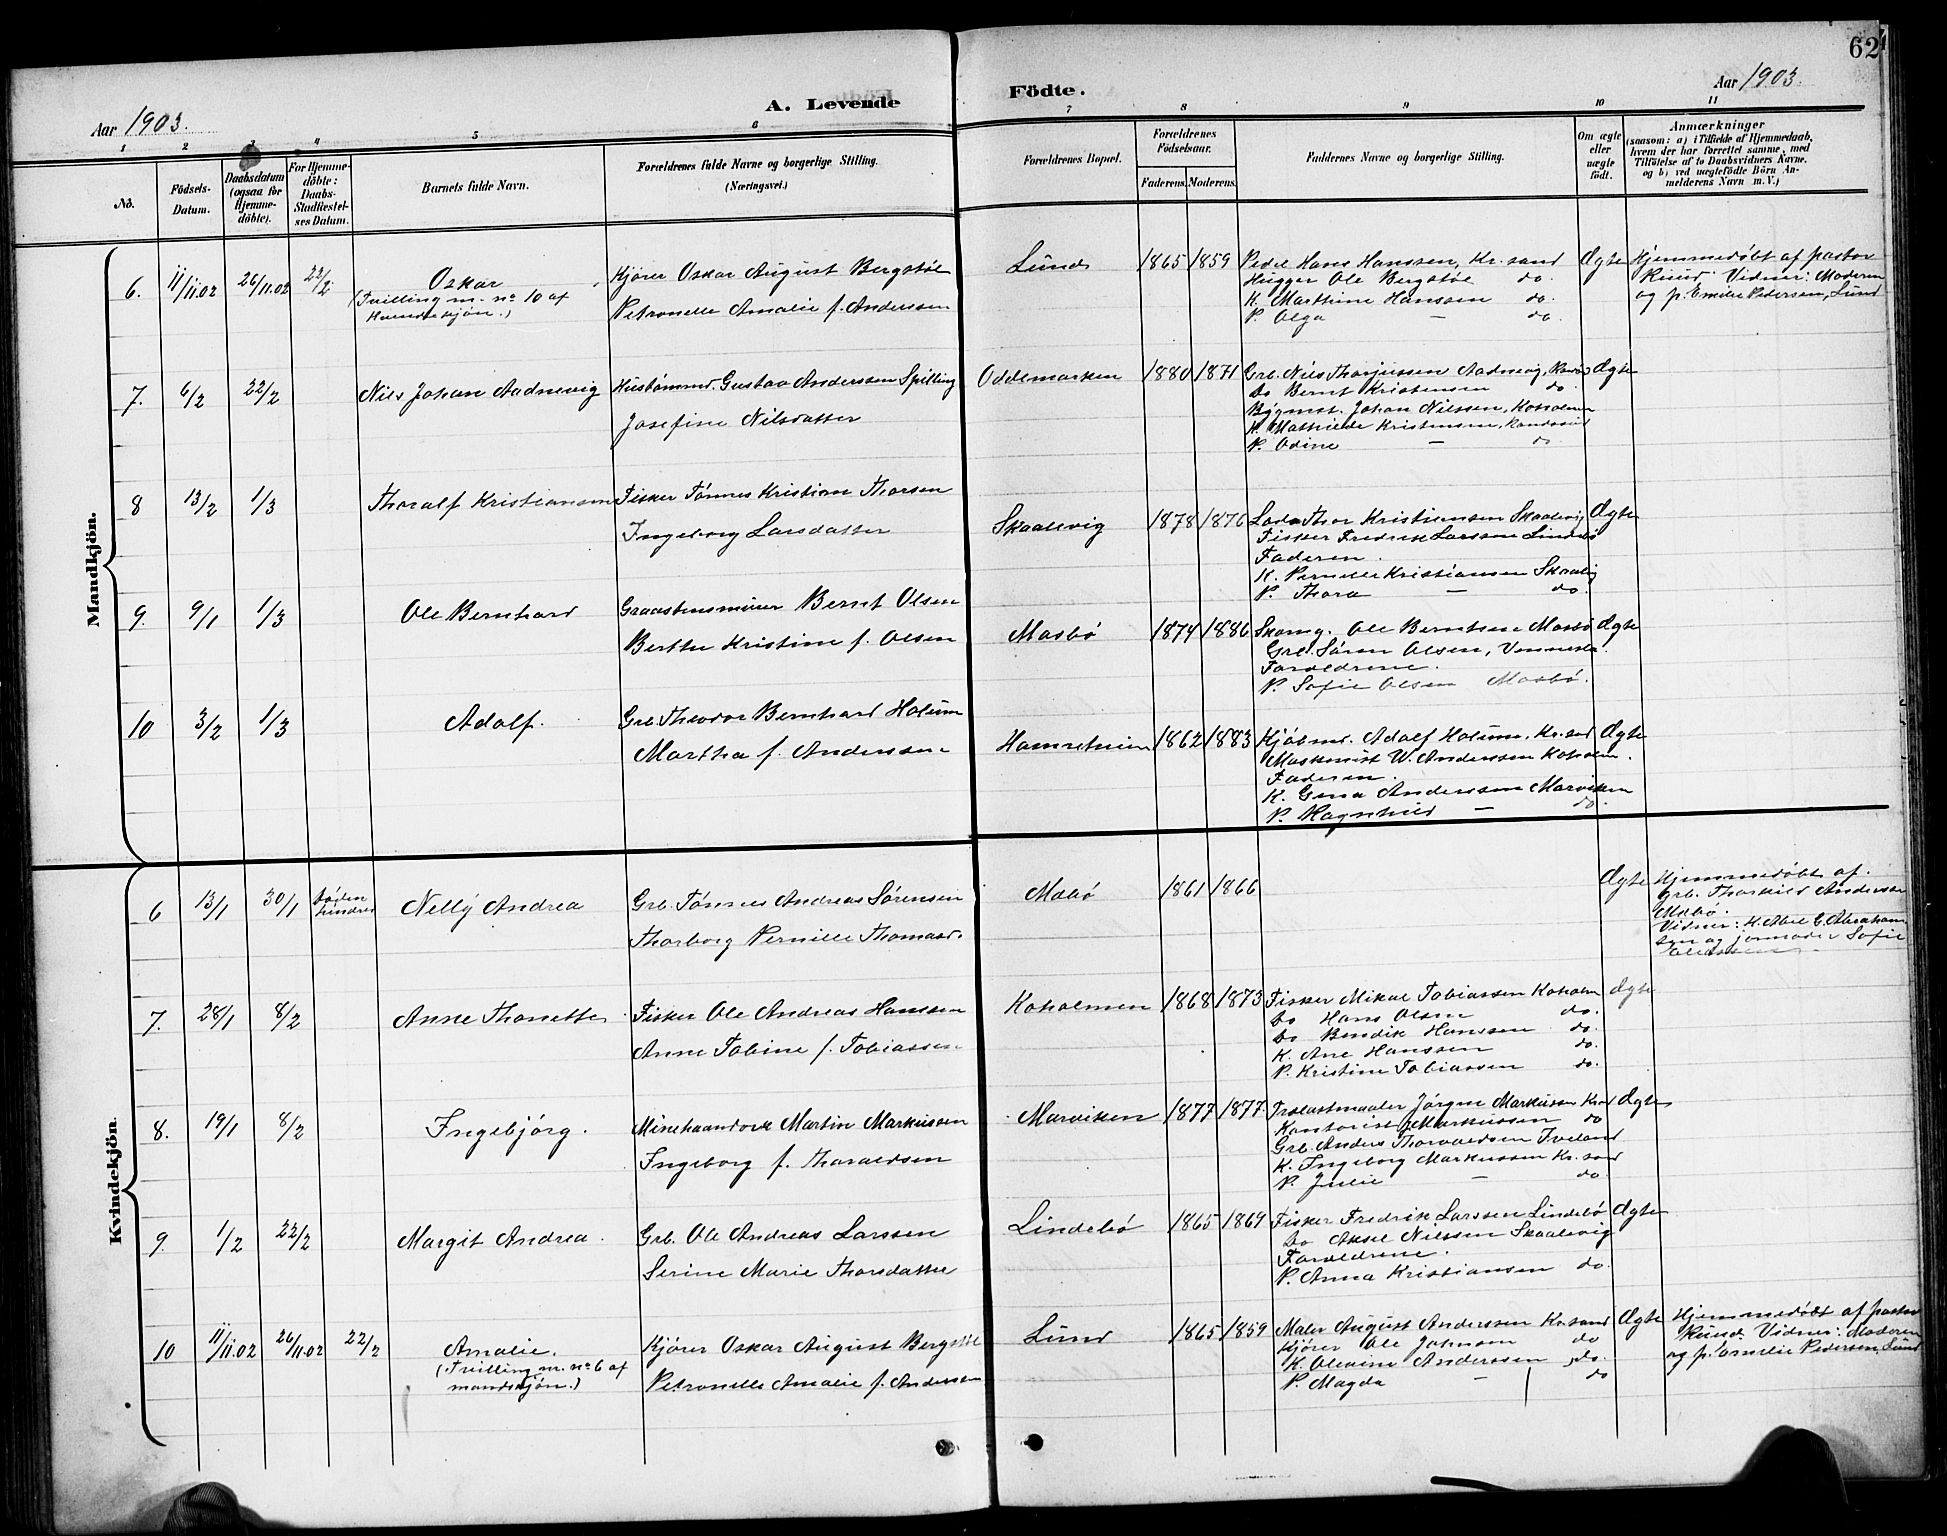 62
Aar 1903.
A. Levende Födte.
Aar 1903.
1 2 3 4 5 6 7 8 9 10 11
No.
Födsels-Datum.
Daabsdatum (ogsaa for Hjemme-döbte).
For Hjemme-döbte: Daabs-Stadfæstel-ses Datum.
Barnets fulde Navn.
Forældrenes fulde Navne og borgerlige Stilling. (Næringsvei.)
Forældrenes Bopæl.
Forældrenes Födselsaar.
Faderens. Moderens.
Faddernes Navne og borgerlige Stilling.
Om ægte eller uægte födt.
Anmærkninger
(saasom: a) i Tilfælde af Hjemmedaab, hvem der har forrettet samme, med Tilföielse af to Daabsvidners Navne. og b) ved uægtefödte Börn An-melderens Navn m. V.)
Mandkjön.
6. 11/11.02 26/11.02 22/2 Oskar
(Tvilling m. no 10 af
Kvindekjön.)
Kjører Oskar August Bergstøl
Petronelle Amalie f. Andersen
Lund 1865 1859
Pedel Hans Hanssen, Kr.sand
Hugger Ole Bergstøl do.
K. Marthine Hanssen do.
P. Olga — do.
Ægte
Hjemmedøbt af pastor
Ruud. Vidner: Moderen
og p. Emilie Pedersen, Lund
7. 6/2 22/2 Nils Johan Aadnevig
Hustømmd. Gustav Anderssen Spilling
Josefine Nilsdatter
Oddemarken 1880 1871
Grb. Nils Thorjussen Aadnevig,
Do Bernt Kristensen do.
Bygmst. Johan Nilssen, Koholmen
K. Mathilde Kristensen, Randøsund
P. Odine — do
Ægte
8 13/2 1/3 Thoralf Kristiansen
Fisker Tønnes Kristian Thorsen
Ingeborg Larsdatter
Skaalevig 1878 1876
Lods Thor Kristiansen Skaalevig
Fisker Fredrik Larssen Lindebø
Faderen.
K. Pernille Kristiansen Skaalevig
P. Thora — do.
Ægte
9. 9/1 1/3 Ole Bernhard
Graastensmurer Bernt Olsen
Berthe Kristine f. Olsen
Mosbø 1874 1886
Skomg. Ole Berntsen Mosbø
Grb. Søren Olsen, Vennesla.
Forældrene.
P. Sofie Olsen Mosbø.
Ægte
10 3/2 1/3 Adolf.
Grb. Theodor Bernhard Holum
Martha f. Anderssen
Hamretunn 1862 1883
Kjøbmd. Adolf Holum, Kr.sand
Maskinist W. Anderssen Koholm.
Faderen.
K. Gina Anderssen Marviken
P. Ragnhild — do.
Ægte
Kvindekjön.
6 13/1 30/1 Døden hindred
Nelly Andrea
Grb. Tønnes Andreas Sørensen
Thorborg Pernille Thomasd.
Mæbø 1861 1866
Ægte
Hjemmedøbt af
Grb. Thorkild Anderssen
Mæbø.
Vidner: K. Abel G. Abraham-
sen og jormoder Sofie
7. 28/1 8/2 Anne Thonette
Fisker Ole Andreas Hanssen
Anne Tobine f. Tobiassen
Koholmen 1868 1873
Fisker Mikal Tobiassen Koholm
Do Hans Olsen do.
Do Bendik Hanssen do.
K. Ane Hanssen do.
P. Kristine Tobiassen do.
Ægte
8. 19/1 8/2 Ingebjörg.
Minehaandv. Martin Markussen
Ingeborg f. Thoraldsen
Marviken 1877 1877
Jørgen Markussen
Kontorist Markussen do
Grb. Anders Thorvaldsen Iveland
K. Ingeborg Markussen Kr.sand
P. Julie — do.
Ægte
9. 1/2 22/2 Margit Andrea.
Grb. Ole Andreas Larssen
Serine Marie Thorsdatter
Lindebø 1865 1869
Fisker Fredrik Larssen Lindebø
Do Aksel Nilssen Skaalevig
Forældrene.
P. Anna Kristiansen do.
Ægte
10 11/11.02 26/11.02 22/2 Amalie.
(Tvilling m. no 6 af
mandskjön.)
Kjører Oskar August Bergstøl
Petronelle Amalie f. Andersen
Lund 1865 1859
Maler August Anderssen Kr.sand
Kjører Ole Johnsen do
K. Olevine Anderssen do.
P. Magda — do
Ægte
Hjemmedøbt af pastor
Ruud. Vidner: Moderen
og p. Emilie Pedersen, Lund